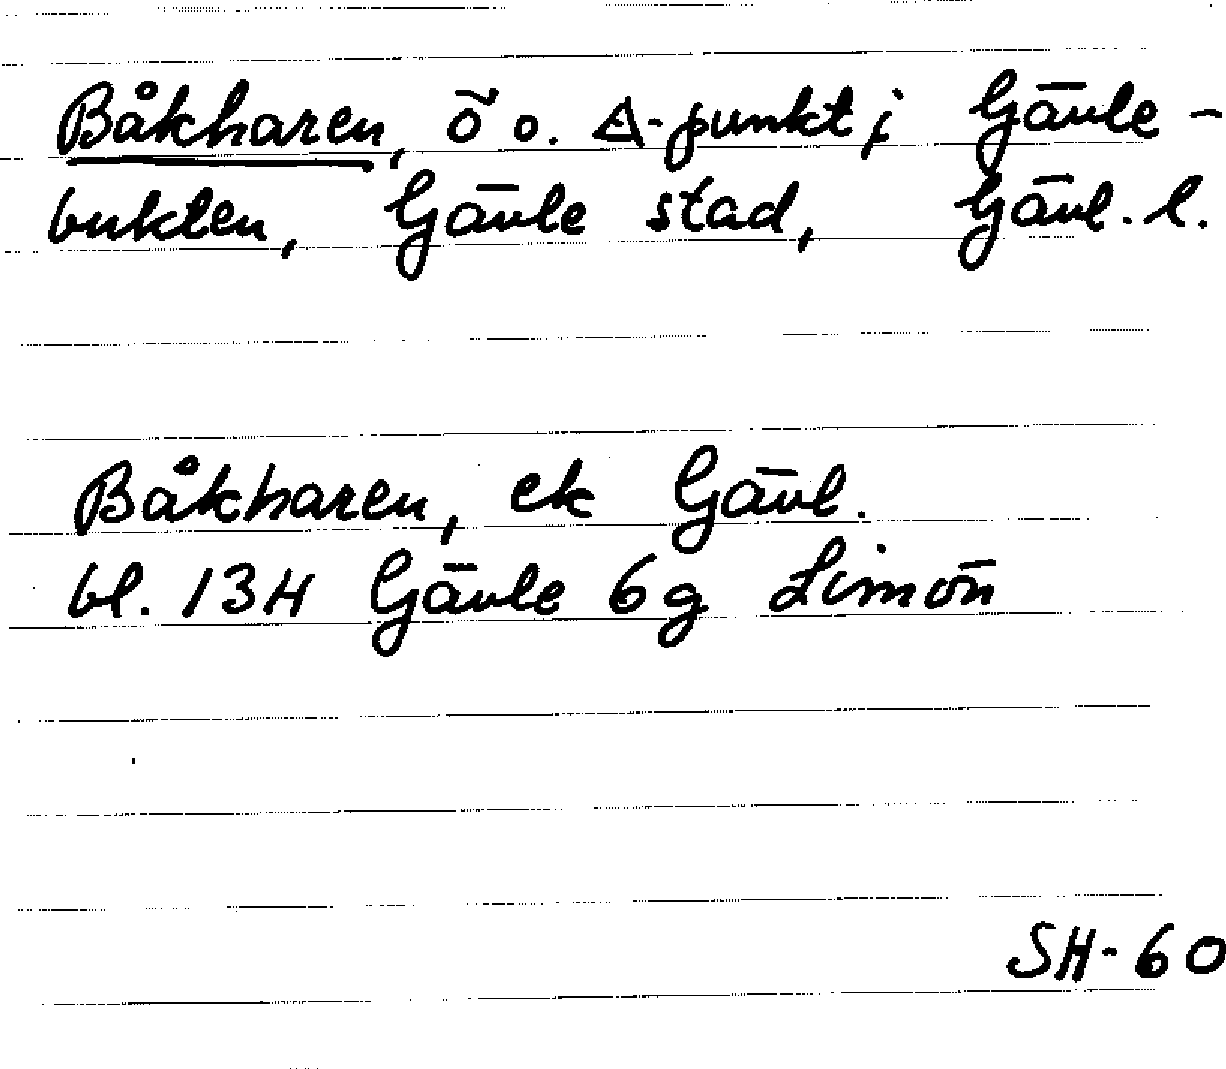 Båkharen, ö o. △-punkt i Gävle-
bukten, Gävle stad, Gävl. l.
Båkharen, ek Gävl.
bl. 13H Gävle 6g Limön
SH-60